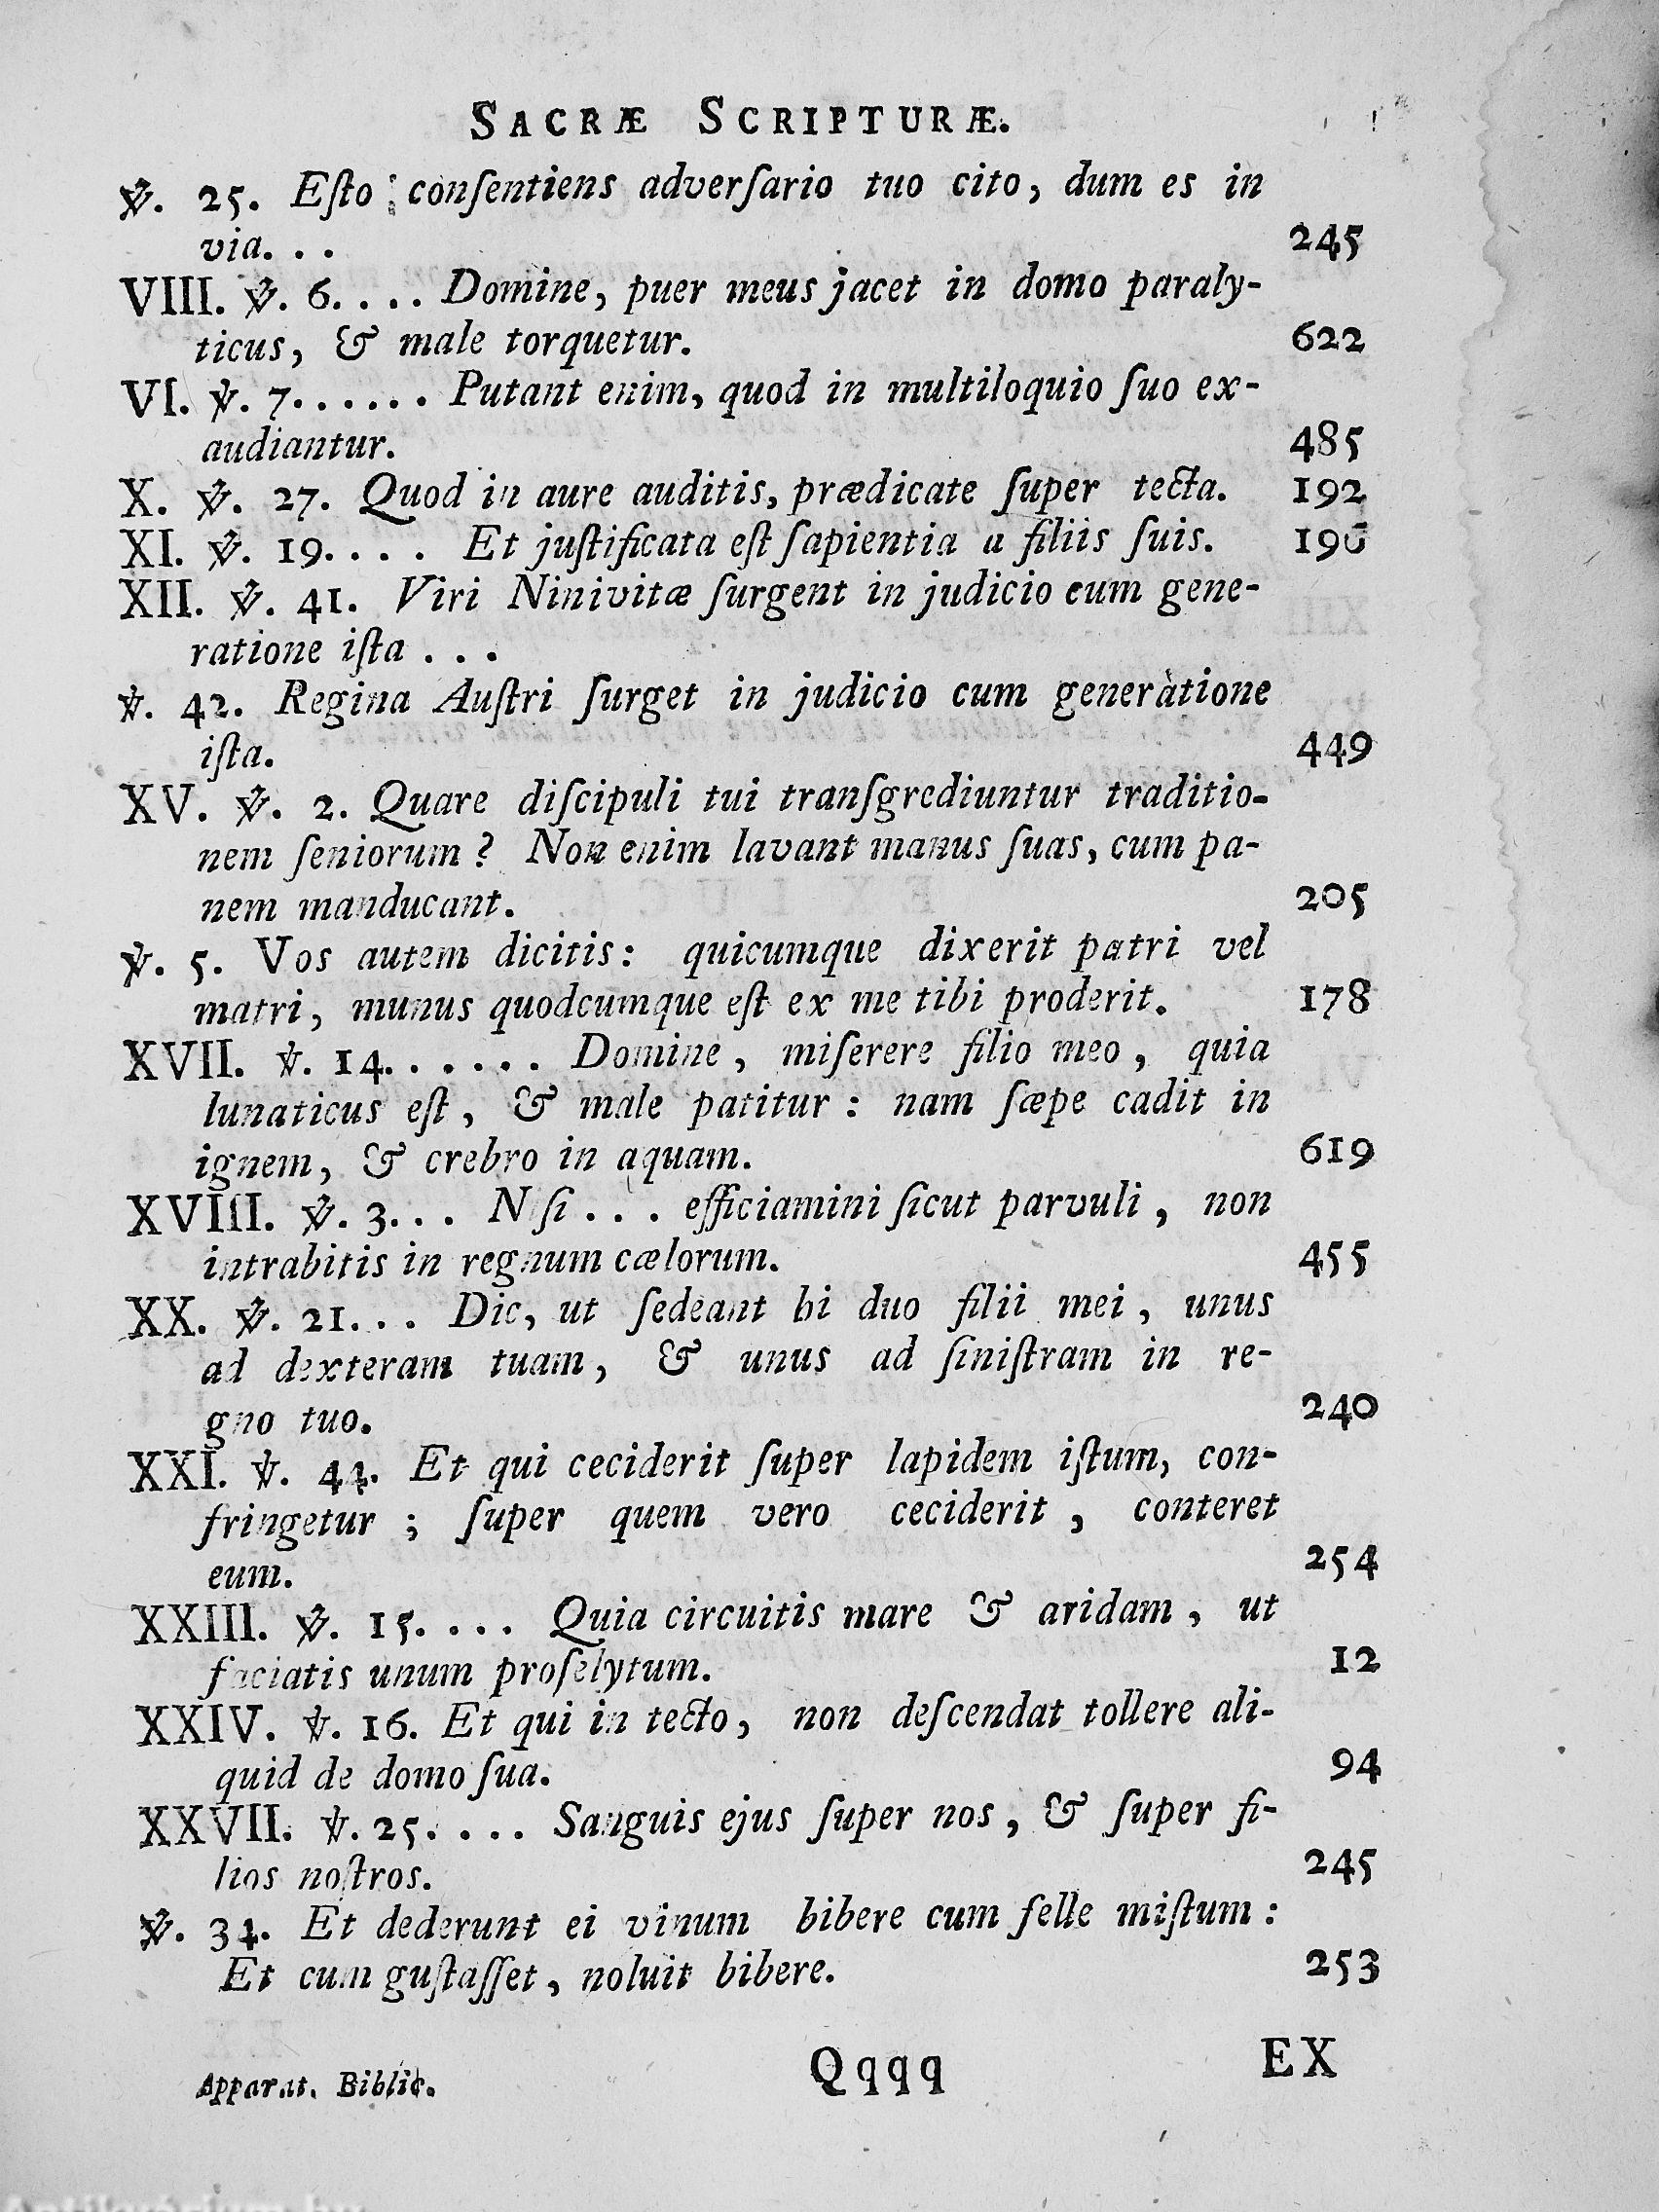 SACRÆ SCRIPTURÆ.
℣. 25. Eſto conſentiens adverſario tuo cito, dum es in
via. . . 245
VIII. ℣. 6. . . . Domine, puer meus jacet in domo paraly-
ticus, & male torquetur. 622
VI. ℣. 7. . . . . . Putant enim, quod in multiloquio ſuo ex-
audiantur. 485
X. ℣. 27. Quod in aure auditis, prædicate ſuper tecta. 192
XI. ℣. 19. . . . Et juſtificata eſt ſapientia a filiis ſuis. 196
XII. ℣. 41. Viri Ninivitæ ſurgent in judicio cum gene-
ratione iſta . . .
℣. 42. Regina Auſtri ſurget in judicio cum generatione
iſta. 449
XV. ℣. 2. Quare diſcipuli tui tranſgrediuntur traditio-
nem ſeniorum? Non enim lavant manus ſuas, cum pa-
nem manducant. 205
℣. 5. Vos autem dicitis: quicumque dixerit patri vel
matri, munus quodcumque eſt ex me tibi proderit. 178
XVII. ℣. 14. . . . . . Domine, miſerere filio meo, quia
lunaticus eſt, & male patitur: nam ſæpe cadit in
ignem, & crebro in aquam. 619
XVIII. ℣. 3. . . Niſi . . . efficiamini ſicut parvuli, non
intrabitis in regnum cælorum. 455
XX. ℣. 21. . . Dic, ut ſedeant hi duo filii mei, unus
ad dexteram tuam, & unus ad ſiniſtram in re-
gno tuo. 240
XXI. ℣. 44. Et qui ceciderit ſuper lapidem iſtum, con-
fringetur; ſuper quem vero ceciderit, conteret
eum. 254
XXIII. ℣. 15. . . . Quia circuitis mare & aridam, ut
faciatis unum proſelytum. 12
XXIV. ℣. 16. Et qui in tecto, non deſcendat tollere ali-
quid de domo ſua. 94
XXVII. ℣. 25. . . . Sanguis ejus ſuper nos, & ſuper fi-
lios noſtros. 245
℣. 34. Et dederunt ei vinum bibere cum felle miſtum:
Et cum guſtaſſet, noluit bibere. 253
Apparat. Biblic. Qqqq EX